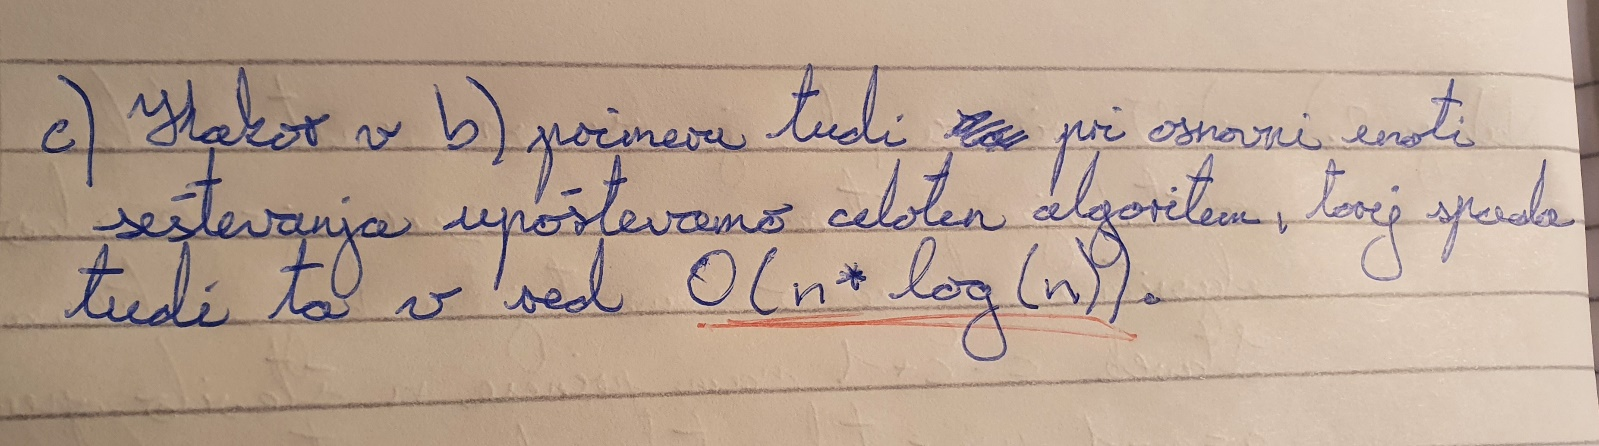 c) Kakor v b) primeru tudi pri osnovni enoti
seštevanja upoštevamo celoten algoritem, torej spada
tudi ta v red O(n* log(n)).